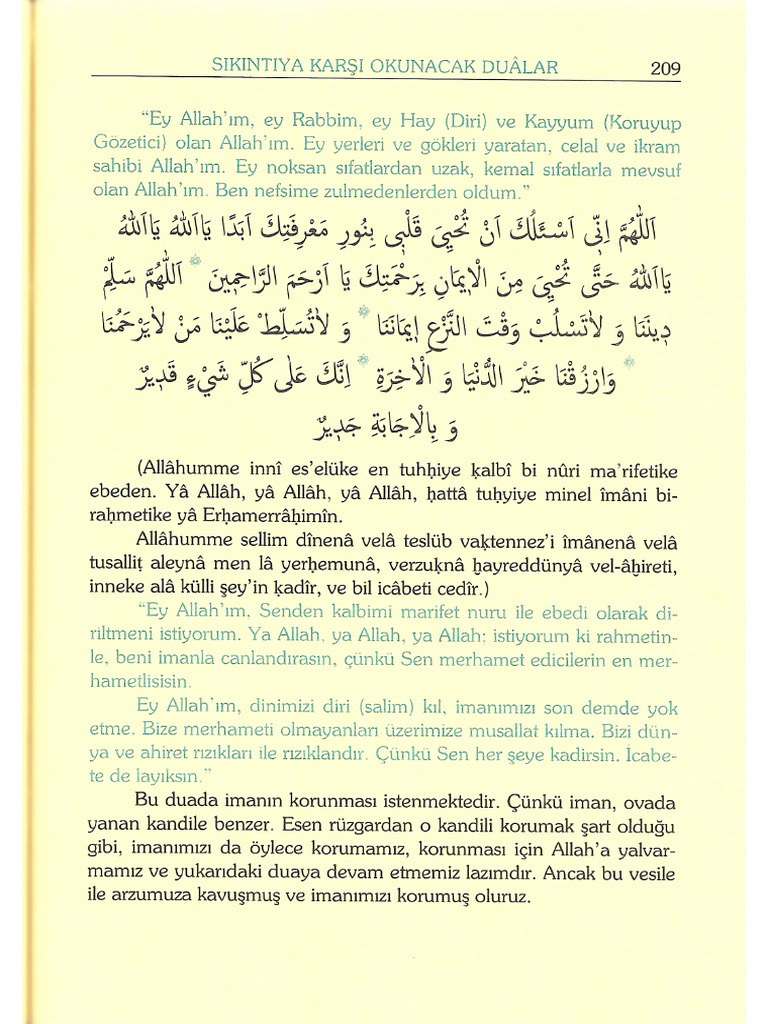 SIKINTIYA KARŞI OKUNACAK DUÂLAR 209
“Ey Allah’ım, ey Rabbim, ey Hay (Diri) ve Kayyum (Koruyup
Gözetici) olan Allah’ım. Ey yerleri ve gökleri yaratan, celal ve ikram
sahibi Allah’ım. Ey noksan sıfatlardan uzak, kemal sıfatlarla mevsuf
olan Allah’ım. Ben nefsime zulmedenlerden oldum.”
اَللّٰهُمَّ اِنّٖى اَسْـَٔلُكَ اَنْ تُحْيِىَ قَلْبٖى بِنُورِ مَعْرِفَتِكَ اَبَدًا يَااَللّٰهُ يَااَللّٰهُ
يَااَللّٰهُ حَتّٰى تُحْيِىَ مِنَ الْاٖيمَانِ بِرَحْمَتِكَ يَا اَرْحَمَ الرَّاحِمٖينَ * اَللّٰهُمَّ سَلِّمْ
دٖينَنَا وَ لَاتَسْلُبْ وَقْتَ النَّزْعِ اٖيمَانَنَا * وَ لَاتُسَلِّطْ عَلَيْنَا مَنْ لَايَرْحَمُنَا
* وَارْزُقْنَا خَيْرَ الدُّنْيَا وَ الْاٰخِرَةِ * اِنَّكَ عَلٰى كُلِّ شَيْءٍ قَدٖيرٌ
وَ بِالْاِجَابَةِ جَدٖيرٌ
(Allâhumme innî es’elüke en tuhḥiye ḳalbî bi nûri ma’rifetike
ebeden. Yâ Allâh, yâ Allâh, yâ Allâh, ḥattâ tuḥyiye minel îmâni bi-
raḥmetike yâ Erḥamerrâḥimîn.
Allâhumme sellim dînenâ velâ teslüb vaḳtennez’i îmânenâ velâ
tusalliṭ aleynâ men lâ yerḥemunâ, verzuḳnâ ḫayreddünyâ vel-âḫireti,
inneke alâ külli şey’in ḳadîr, ve bil icâbeti cedîr.)
“Ey Allah’ım, Senden kalbimi marifet nuru ile ebedi olarak di-
riltmeni istiyorum. Ya Allah, ya Allah, ya Allah; istiyorum ki rahmetin-
le, beni imanla canlandırasın, çünkü Sen merhamet edicilerin en mer-
hametlisisin.
Ey Allah’ım, dinimizi diri (salim) kıl, imanımızı son demde yok
etme. Bize merhameti olmayanları üzerimize musallat kılma. Bizi dün-
ya ve ahiret rızıkları ile rızıklandır. Çünkü Sen her şeye kadirsin. İcabe-
te de layıksın.”
Bu duada imanın korunması istenmektedir. Çünkü iman, ovada
yanan kandile benzer. Esen rüzgardan o kandili korumak şart olduğu
gibi, imanımızı da öylece korumamız, korunması için Allah’a yalvar-
mamız ve yukarıdaki duaya devam etmemiz lazımdır. Ancak bu vesile
ile arzumuza kavuşmuş ve imanımızı korumuş oluruz.